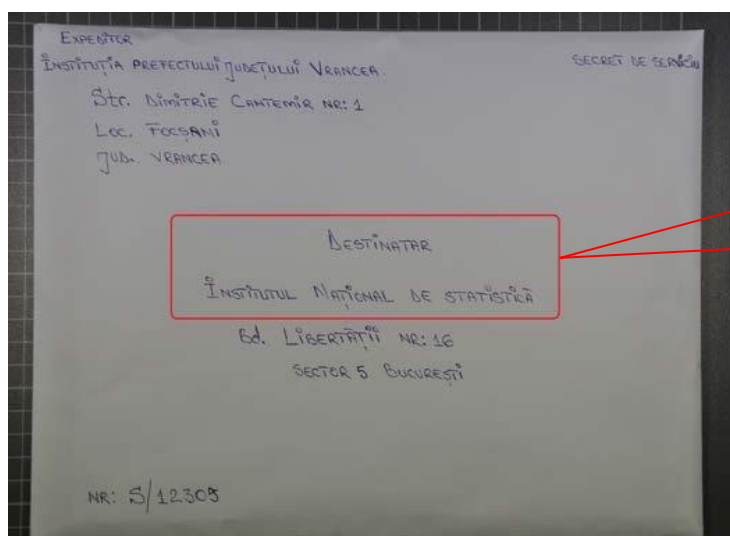 EXPEDITOR
INSTITUȚIA PREFECTULUI JUDEȚULUI VRANCEA
SECRET DE SERVICIU
Str. DIMITRIE CANTEMIR NR: 1
Loc. FOCȘANI
JUD. VRANCEA
DESTINATAR
INSTITUTUL NAȚIONAL DE STATISTICĂ
Bd. LIBERTĂȚII NR: 16
SECTOR 5 BUCUREȘTI
NR: S/12305